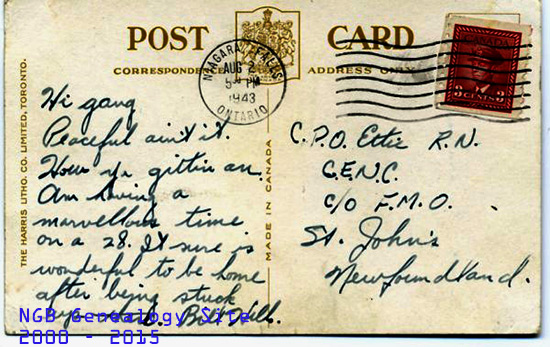 POST CARD
CORRESPONDENCE
ADDRESS ONLY
NIAGARA FALLS
AUG 2
5 PM
1943
ONTARIO
CANADA
3 CENTS 3
THE HARRIS LITHO. CO. LIMITED, TORONTO.
MADE IN CANADA
Hi gang
Peaceful ain't it.
How ya gittin on.
Am having a
marvellous time
on a 28. It sure is
wonderful to be home
after being stuck
Bill Hill.
C.P.O. Ettie R.N.
C.E.N.C.
c/o F.M.O.
St. John's
Newfoundland.
NGB Genealogy Site
2000 - 2015